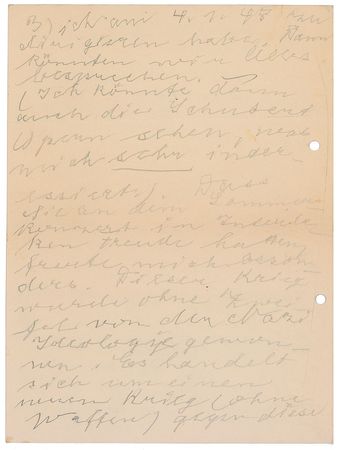 3) ich am 4. 1. 48 zu
dirigieren habe. Dann
könnten wir Alles
besprechen.
(Ich könnte dann
auch die Schubert
Opern sehen, was
mich sehr inter-
essiert) Dass
Sie an dem Sommer
konzert in
Freude hatten
freute mich beson-
ders. Dieser Krieg
wurde ohne Zwei
fel von der Nazi
Ideologie gewon-
nen. Es handelt
sich um einen
neuen Krieg (ohne
Waffen) gegen diese